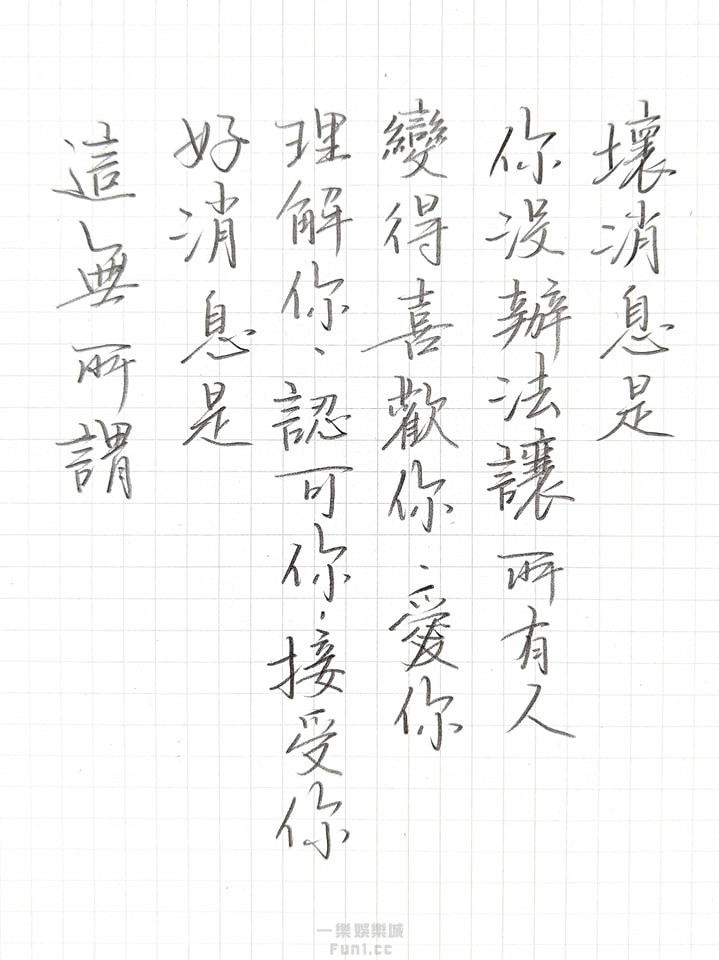 壞消息是
你沒辦法讓所有人
變得喜歡你、愛你
理解你、認可你、接受你
好消息是
這無所謂
一樂娛樂城
Fun1.cc